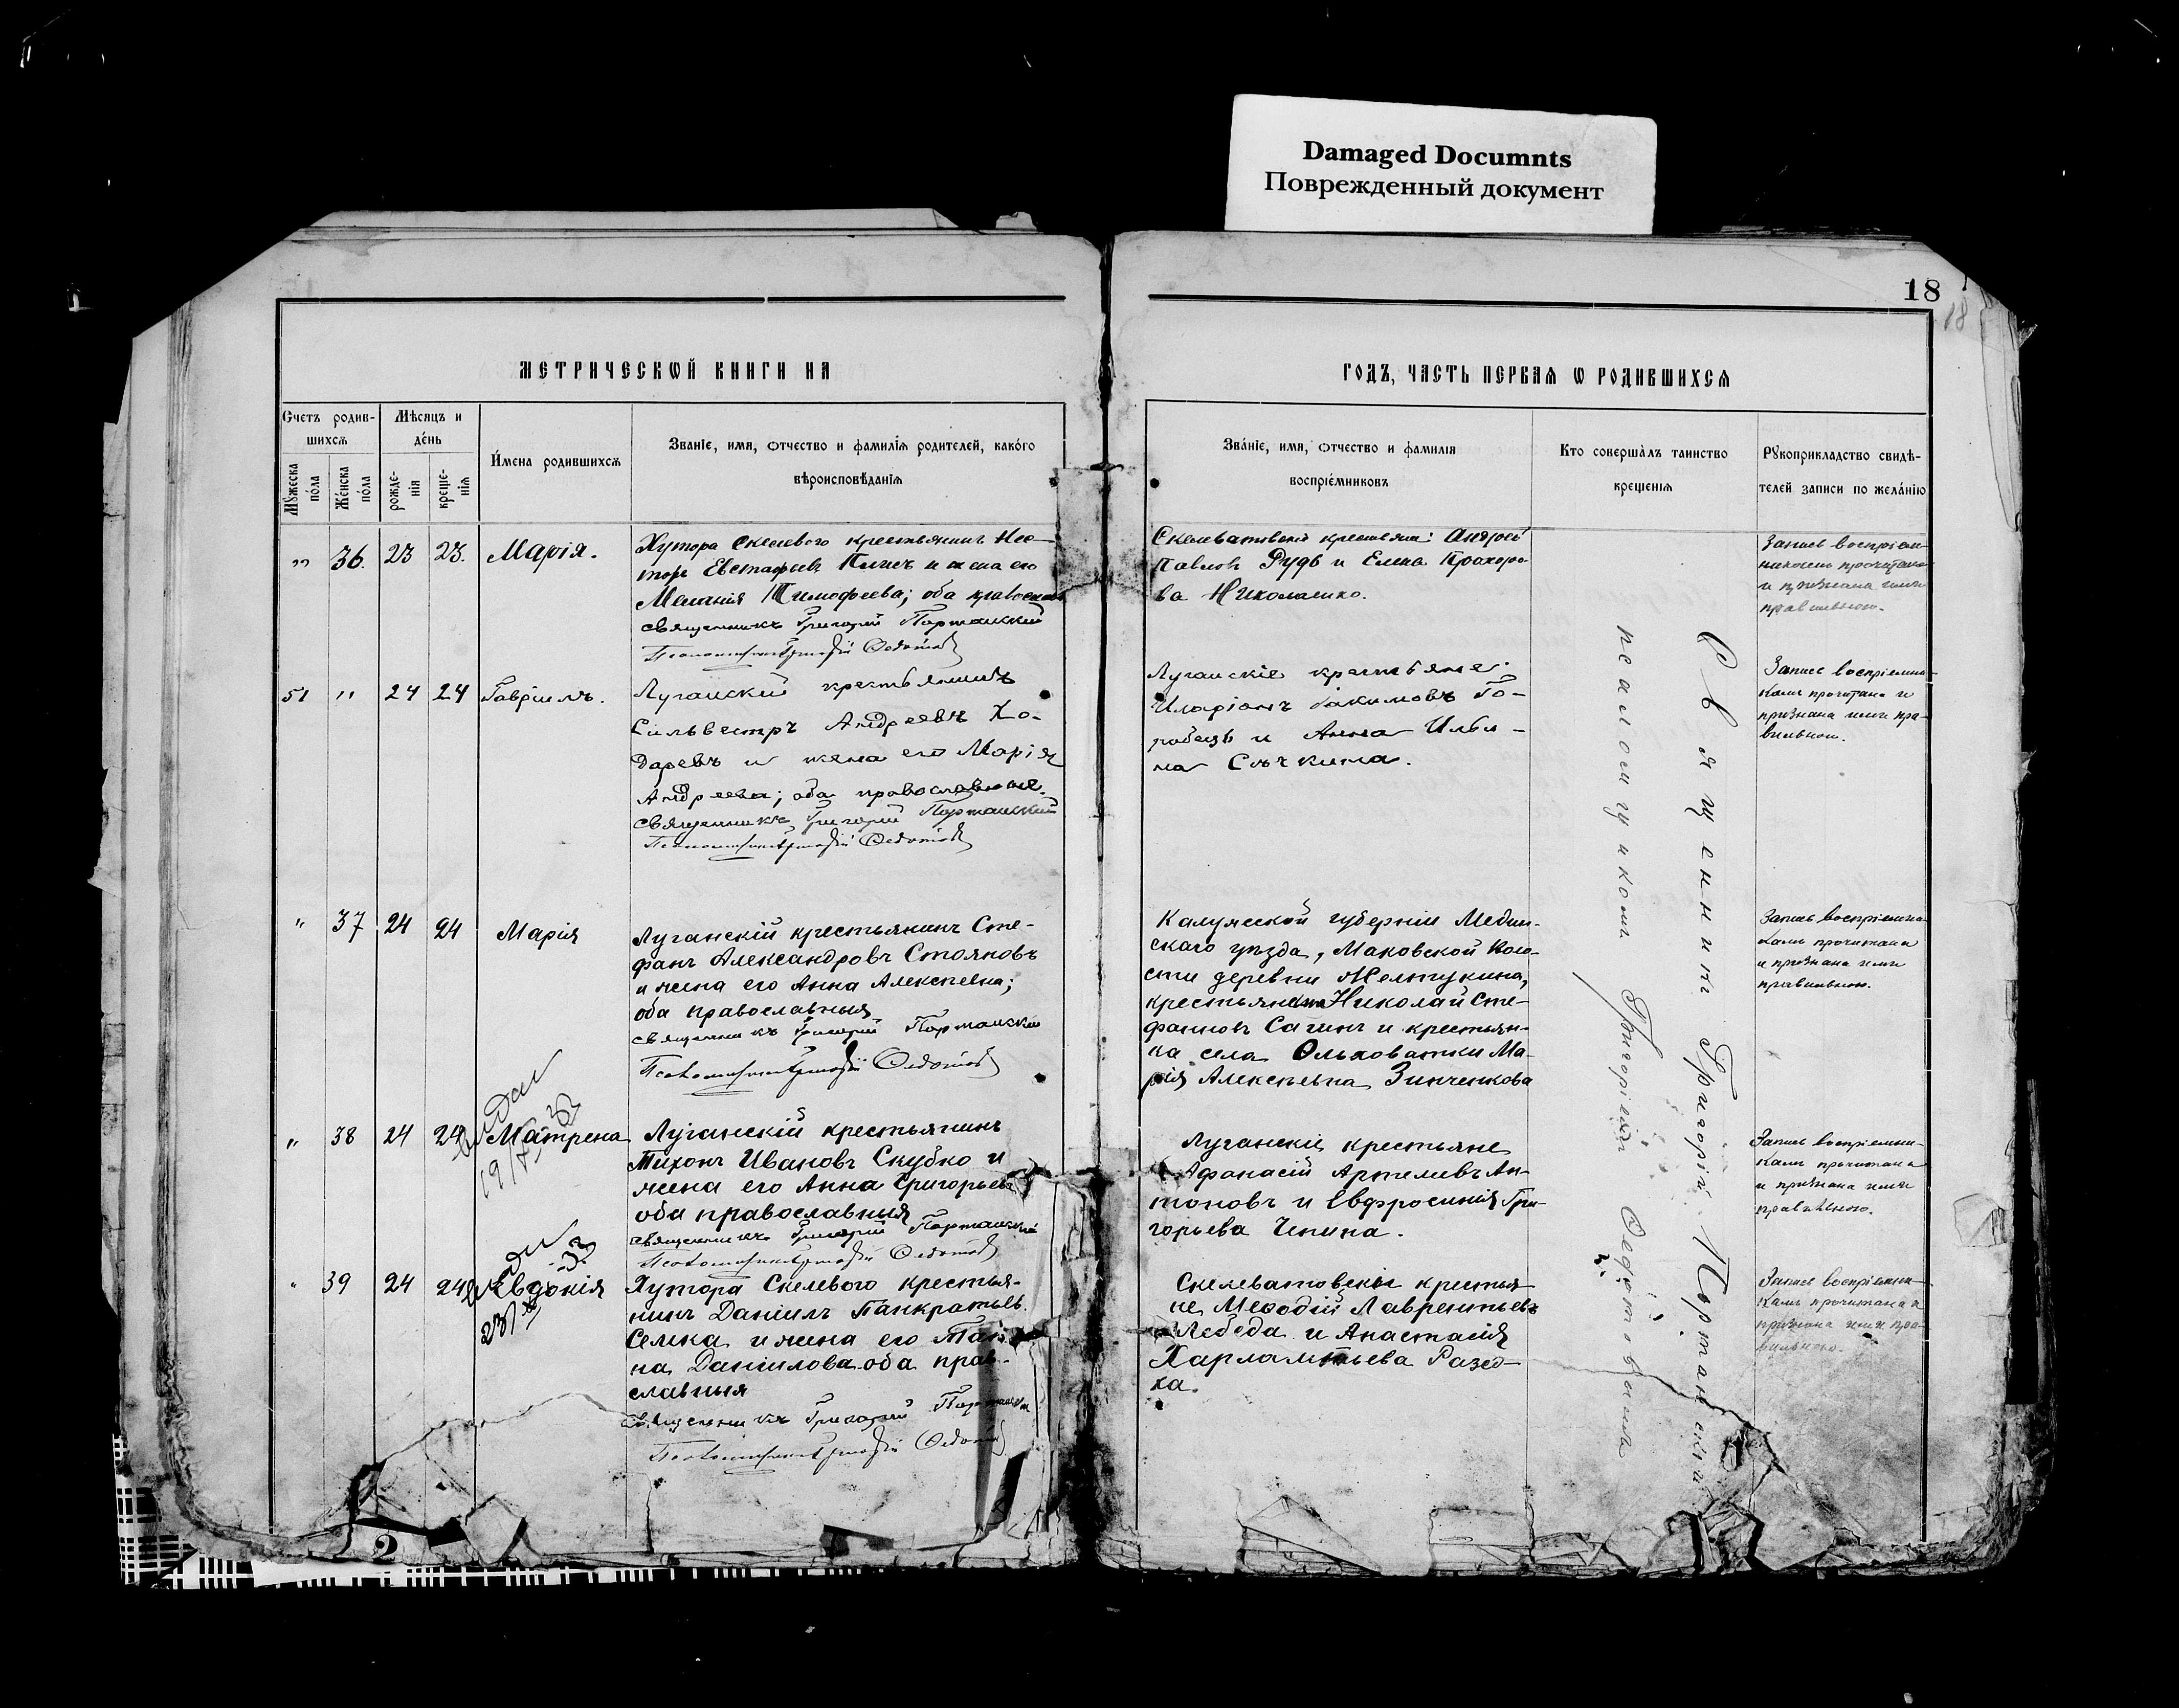 Damaged Documnts
Поврежденный документ
18
18
МЕТРИЧЕСКѠЙ КНИГИ НА
ГОДЪ, ЧАСТЬ ПЕРВАѦ Ѡ РОДИВШИХСѦ
Счетъ родив-
шихсѧ
Мѣсяцъ и
де́нь
Мꙋжеска
по́ла
Же́нска
по́ла
рожде-
нія
креще-
нія
И́мена родившихсѧ
Званіе, имя, отчество и фамилія родителей, како́го
вѣроисповѣданія
Зва́ніе, имя, отчество и фамилія
воспріе́мниковъ
Кто соверша̀лъ таинство
крещенія
Рꙋкоприкладство свидѣ-
телей записи по жела́нію
" 36. 23 23. Марія.
Хутора Скелевого крестьянинъ Нес-
торъ Евстафьевъ и жена его
Меланія Тимофеева; оба
священникъ Григорій Портанскій
Федотовъ
Скелеватовскіе крестьяне: Андрей
Павловъ Рудь и Елена Прохоро-
ва Николаенко.
Запись воспріем-
никами прочитана
и признана ими
правильною.
51 " 24 24 Гавріилъ.
Луганскій крестьянинъ
Сильвестръ Андреевъ Хо-
даревъ и жена его Марія
Андреева; оба православные.
священникъ Григорій Портанскій
Федотовъ
Луганскіе крестьяне:
Иларіонъ Іакимовъ Го-
робецъ и Анна Ильи-
на Сѣчкина.
Запись воспріемни-
ками прочитана и
признана ими пра-
вильною.
" 37 24 24 Марія
Луганскій крестьянинъ Сте-
фанъ Александровъ Стояновъ
и жена его Анна Алексѣевна;
оба православныя
священникъ Григорій Портанскій
Федотовъ
Калужской губерніи Медын-
скаго уѣзда, Маковской воло-
сти деревни Желтухина,
крестьянинъ Николай Сте-
фановъ Сагинъ и крестьян-
ка села Ольховатки Ма-
рія Алексѣевна Зинченкова
Запись воспріемни-
ками прочитана
и признана ими
правильною.
" 38 24 24 Матрена
Луганскій крестьянинъ
Тихонъ Ивановъ Скубко и
жена его Анна Григорьева
оба православныя
священникъ Григорій Портанскій
Федотовъ
Луганскіе крестьяне
Афанасій Артемьевъ Ан-
тоновъ и Евфросинія Гри-
горьева Чепина.
Запись воспріемни-
ками прочитана
и признана ими
правильною.
" 39 24 24 Евдокія
Хутора Скелевого крестья-
нинъ Даніилъ Панкратьев.
Семка и жена его
на Даніилова оба право-
славныя
священникъ Григорій
Федотовъ
Скелеватовскіе крестья-
не Меѳодій Лаврентьевъ
Лебеда и Анастасія
Харлампьева
ха.
Запись воспріемни-
ками прочитана и
признана ими пра-
вильною.
Священникъ Григорій Портанскій
псаломщикомъ Григоріемъ Федотовымъ
2